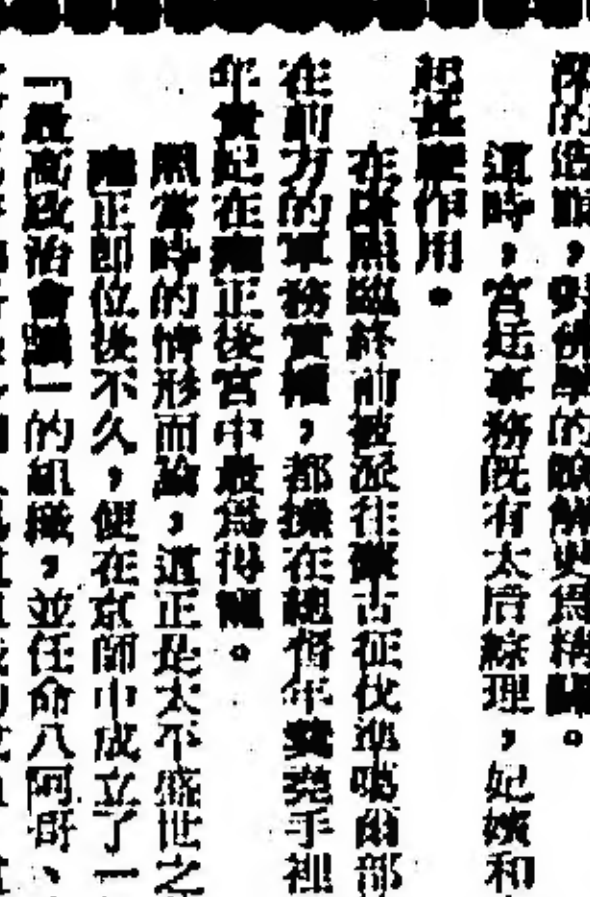 深的造詣,對佛學的瞭解更爲精闢。
這時,宮廷事務既有太后綜理,妃嬪和
起甚麼作用。
在康熙臨終前被派往蒙古征伐準噶爾部
在前方的軍務實權,都操在總督年羹堯手裡
年貴妃在雍正後宮中最爲得寵。
照當時的情形而論,這正是太平盛世之
雍正即位後不久,便在京師中成立了一
「最高政治會議」的組織,並任命八阿哥、